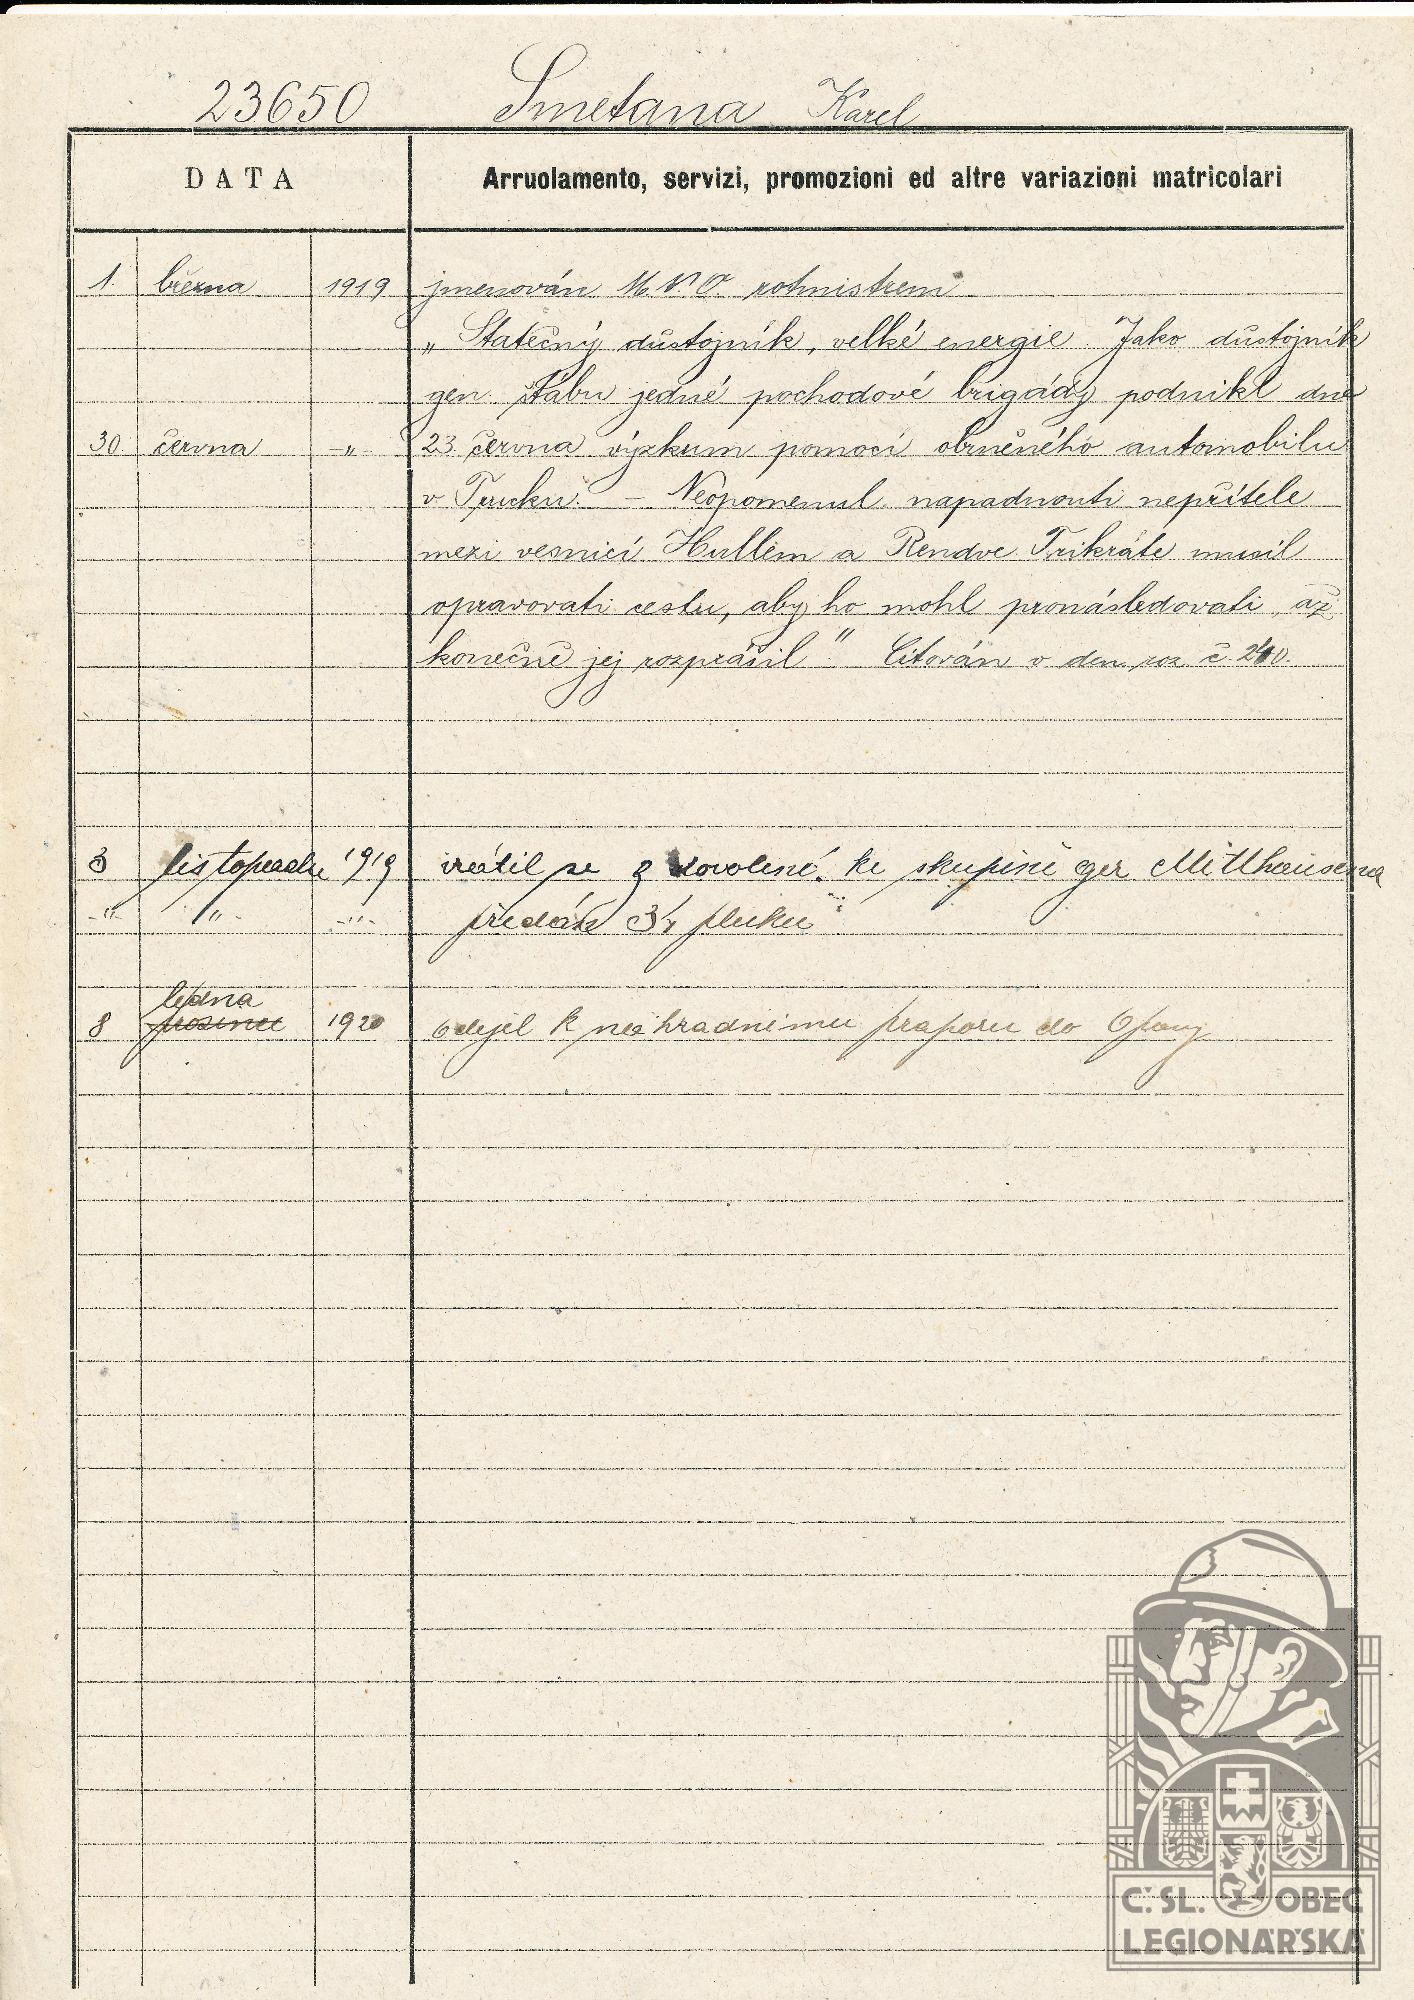 23650 Smetana Karel
DATA Arruolamento, servizi, promozioni ed altre variazioni matricolari
1. března 1919 jmenován M.N.O. rotmistrem
„Statečný důstojník, velké energie. Jako důstojník
gen. štábu jedné pochodové brigády podnikl dne
30 června -„- 23. června výzkum pomocí obrněného automobilu
v Turcku. – Neopomenul napadnouti nepřítele
mezi vesnicí Hullém a Rendve. Trikráte musil
opravovati cestu, aby ho mohl pronásledovati, až
konečně jej rozprášil." Citován v den. roz. č.
3 listopadu 1919 vrátil se z dovolené ke skupině Mittlhausena
-"- "- -"- předán 34 pluku
ledna
8 prosince 1920 odejel k náhradnímu praporu do Opavy
Č. SL. OBEC
LEGIONÁŘSKÁ